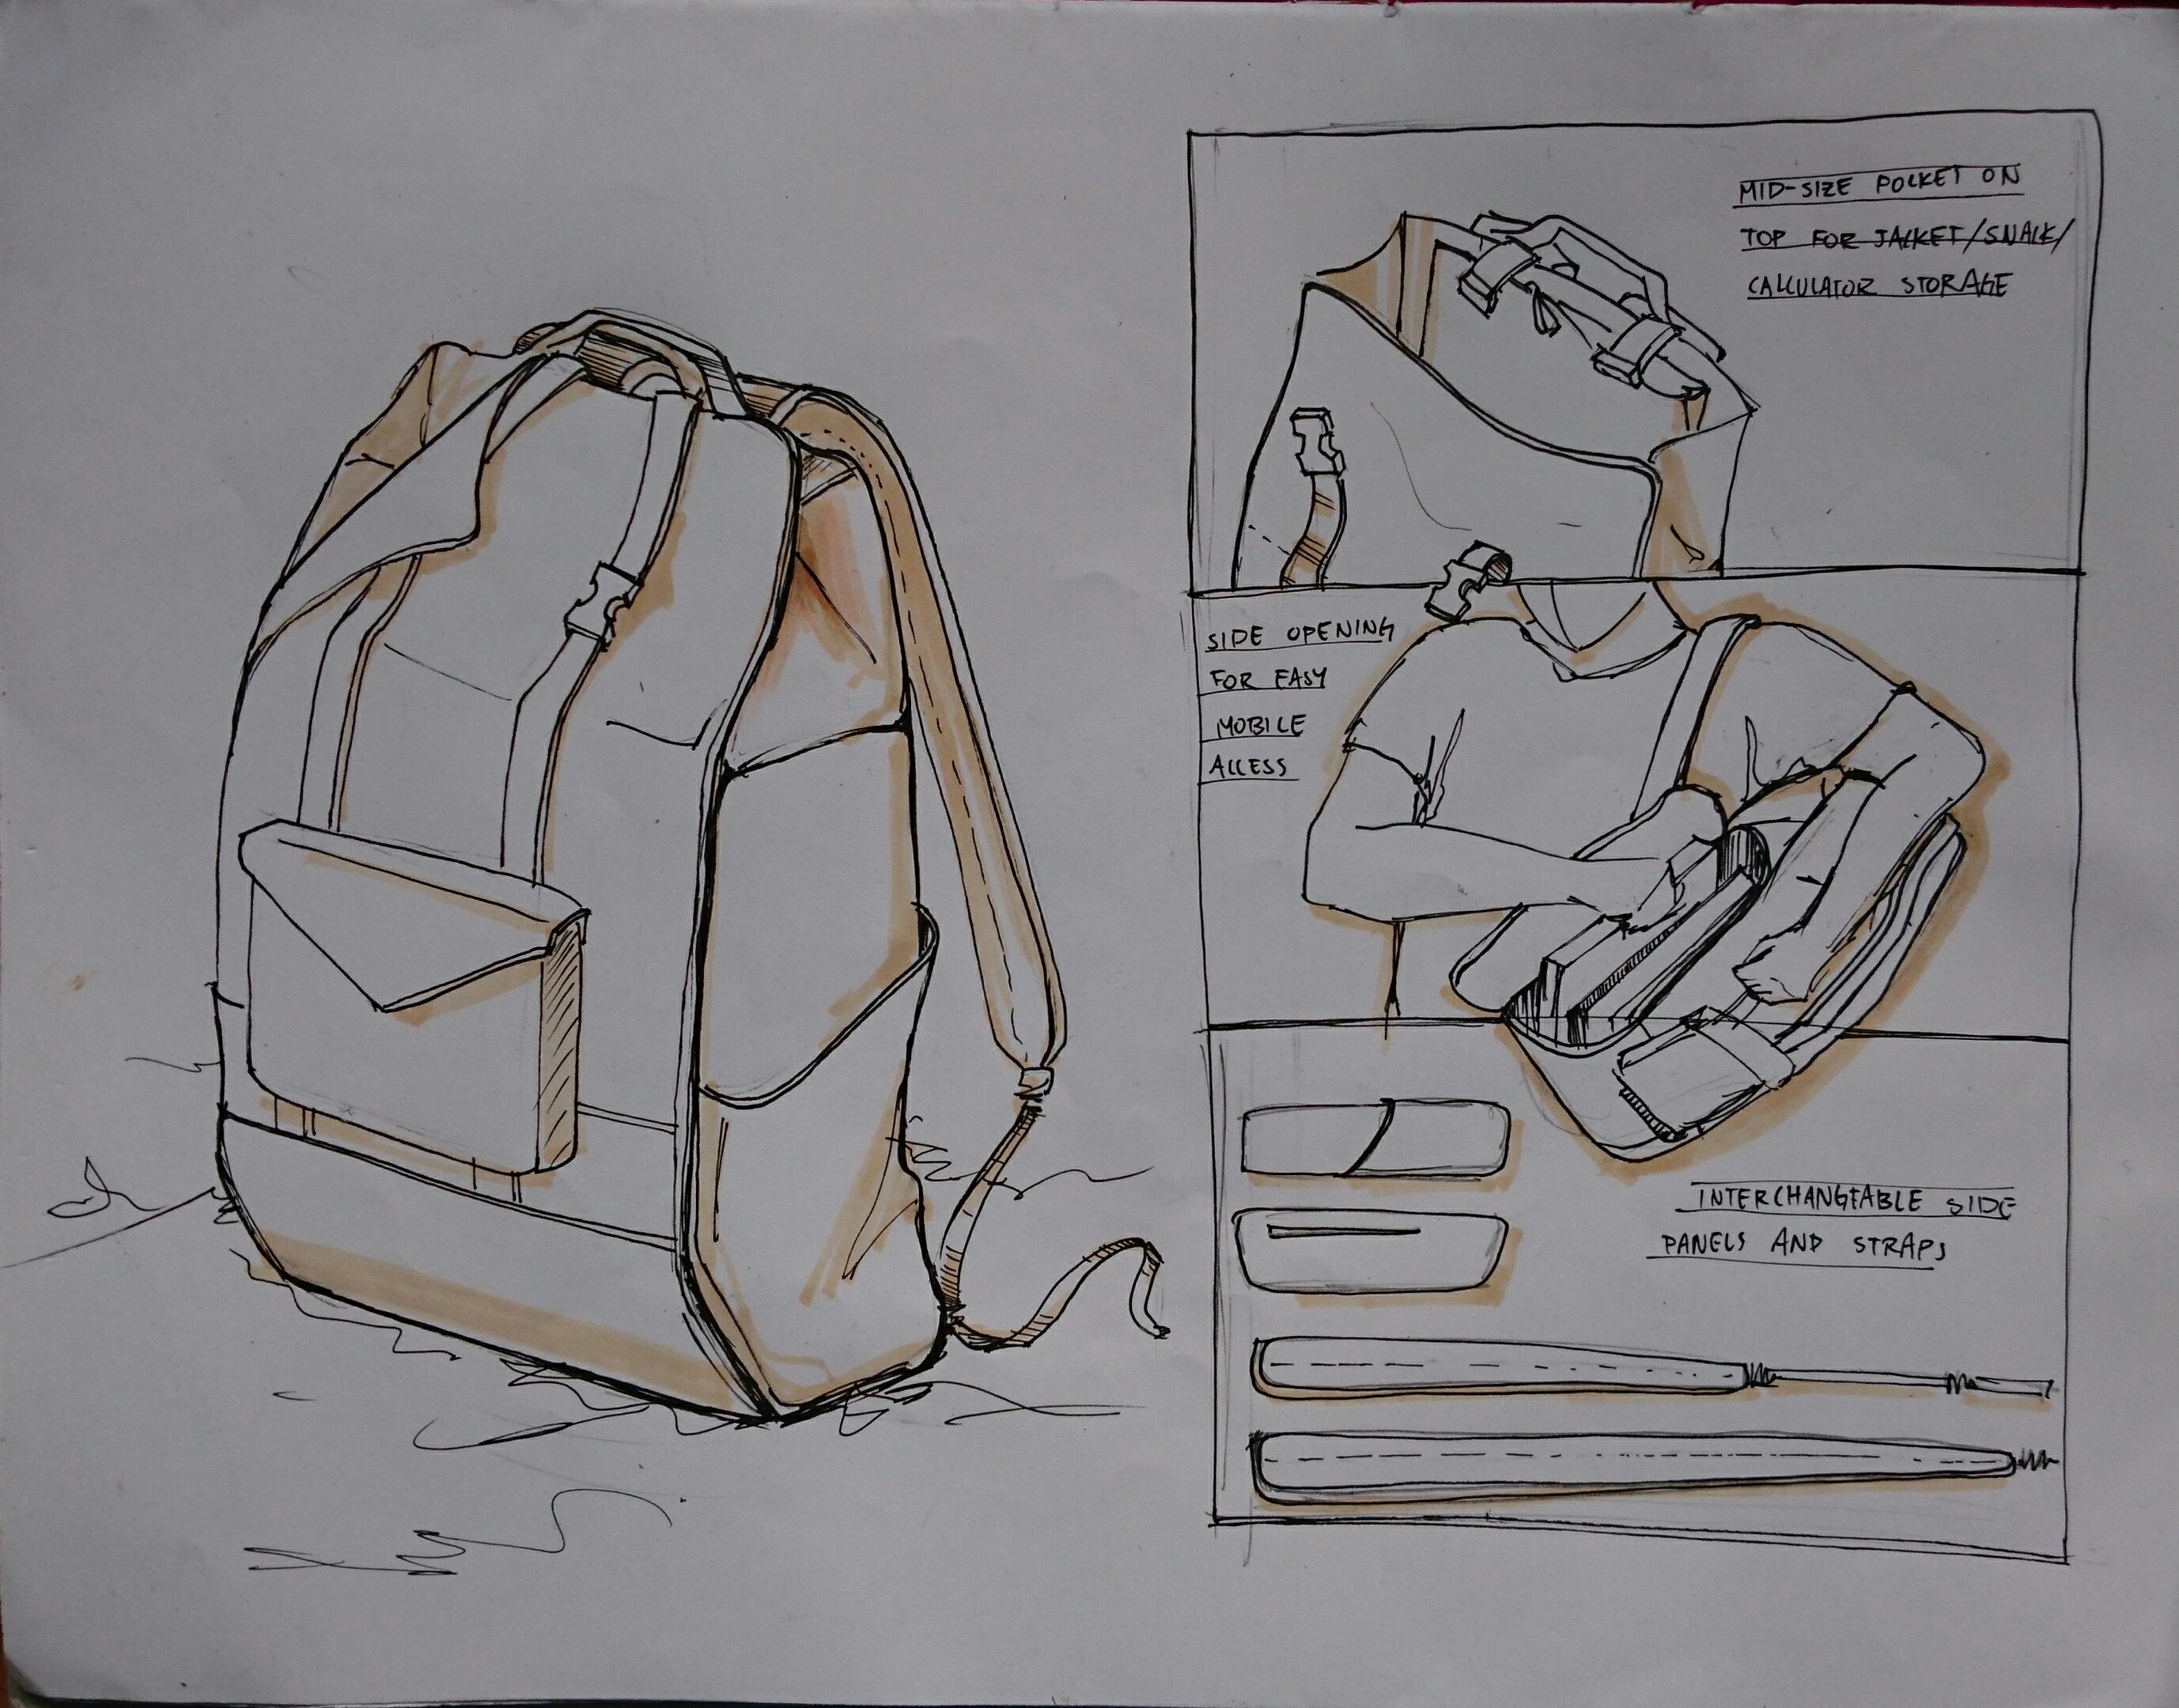 MID-SIZE POCKET ON
TOP FOR JACKET/SNACK/
CALCULATOR STORAGE
SIDE OPENING
FOR EASY
MOBILE
ACCESS
INTERCHANGEABLE SIDE
PANELS AND STRAPS